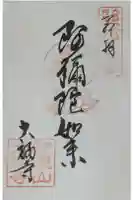 奉拝
阿彌陀如来
大福寺